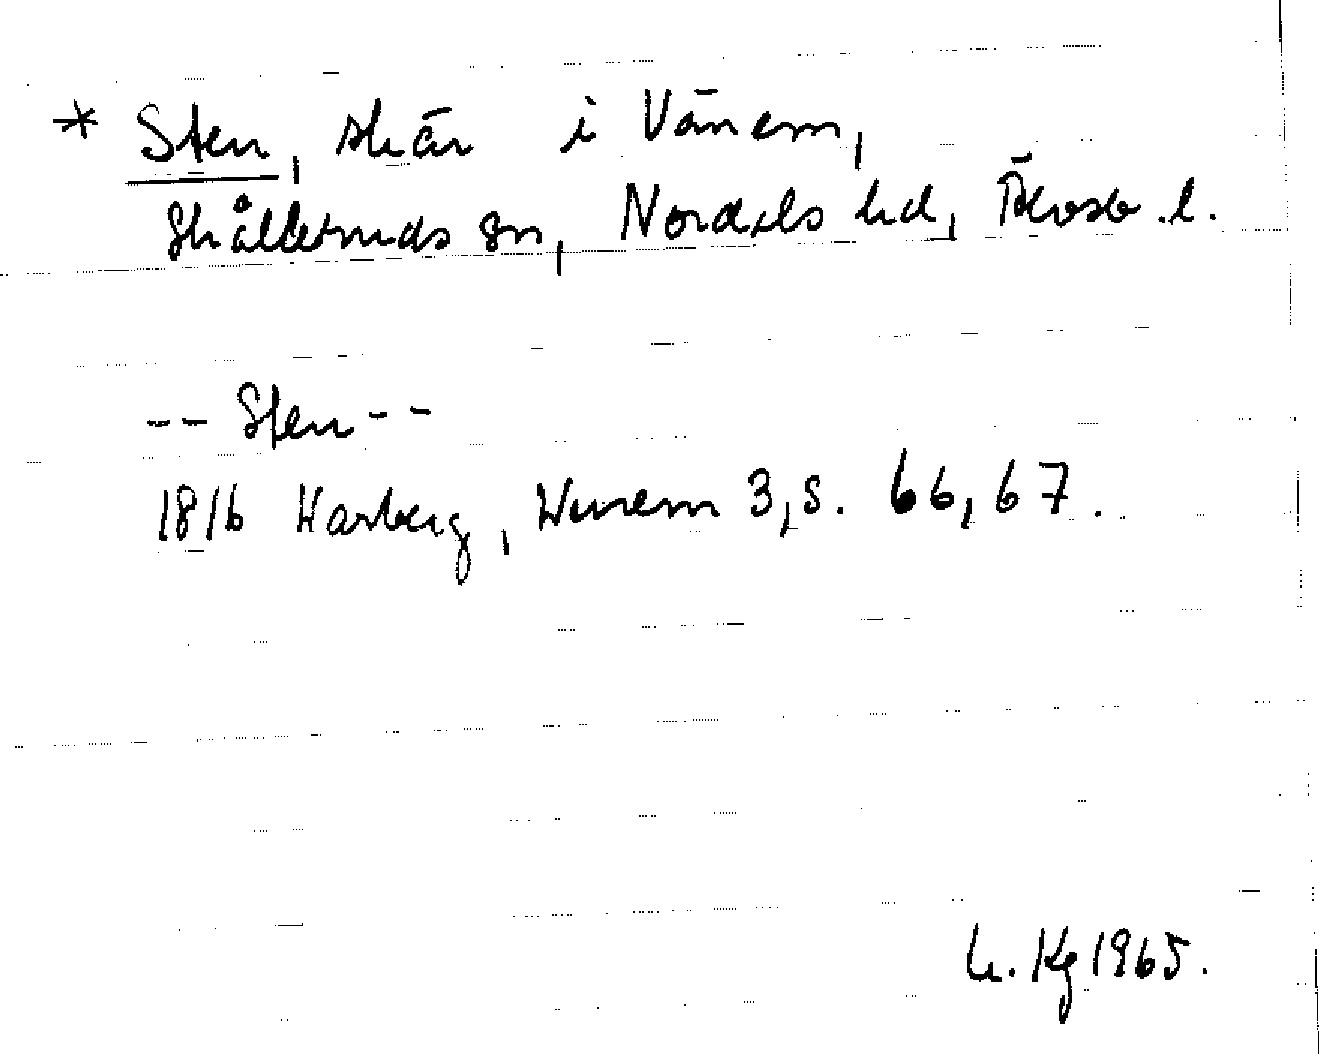 * Sten, skär i Vänern,
Skålleruds sn, Nordals hd, Älvsb. l.
-- Sten --
1816 Warberg, Wenern 3, s. 66, 67.
Kg 1965.